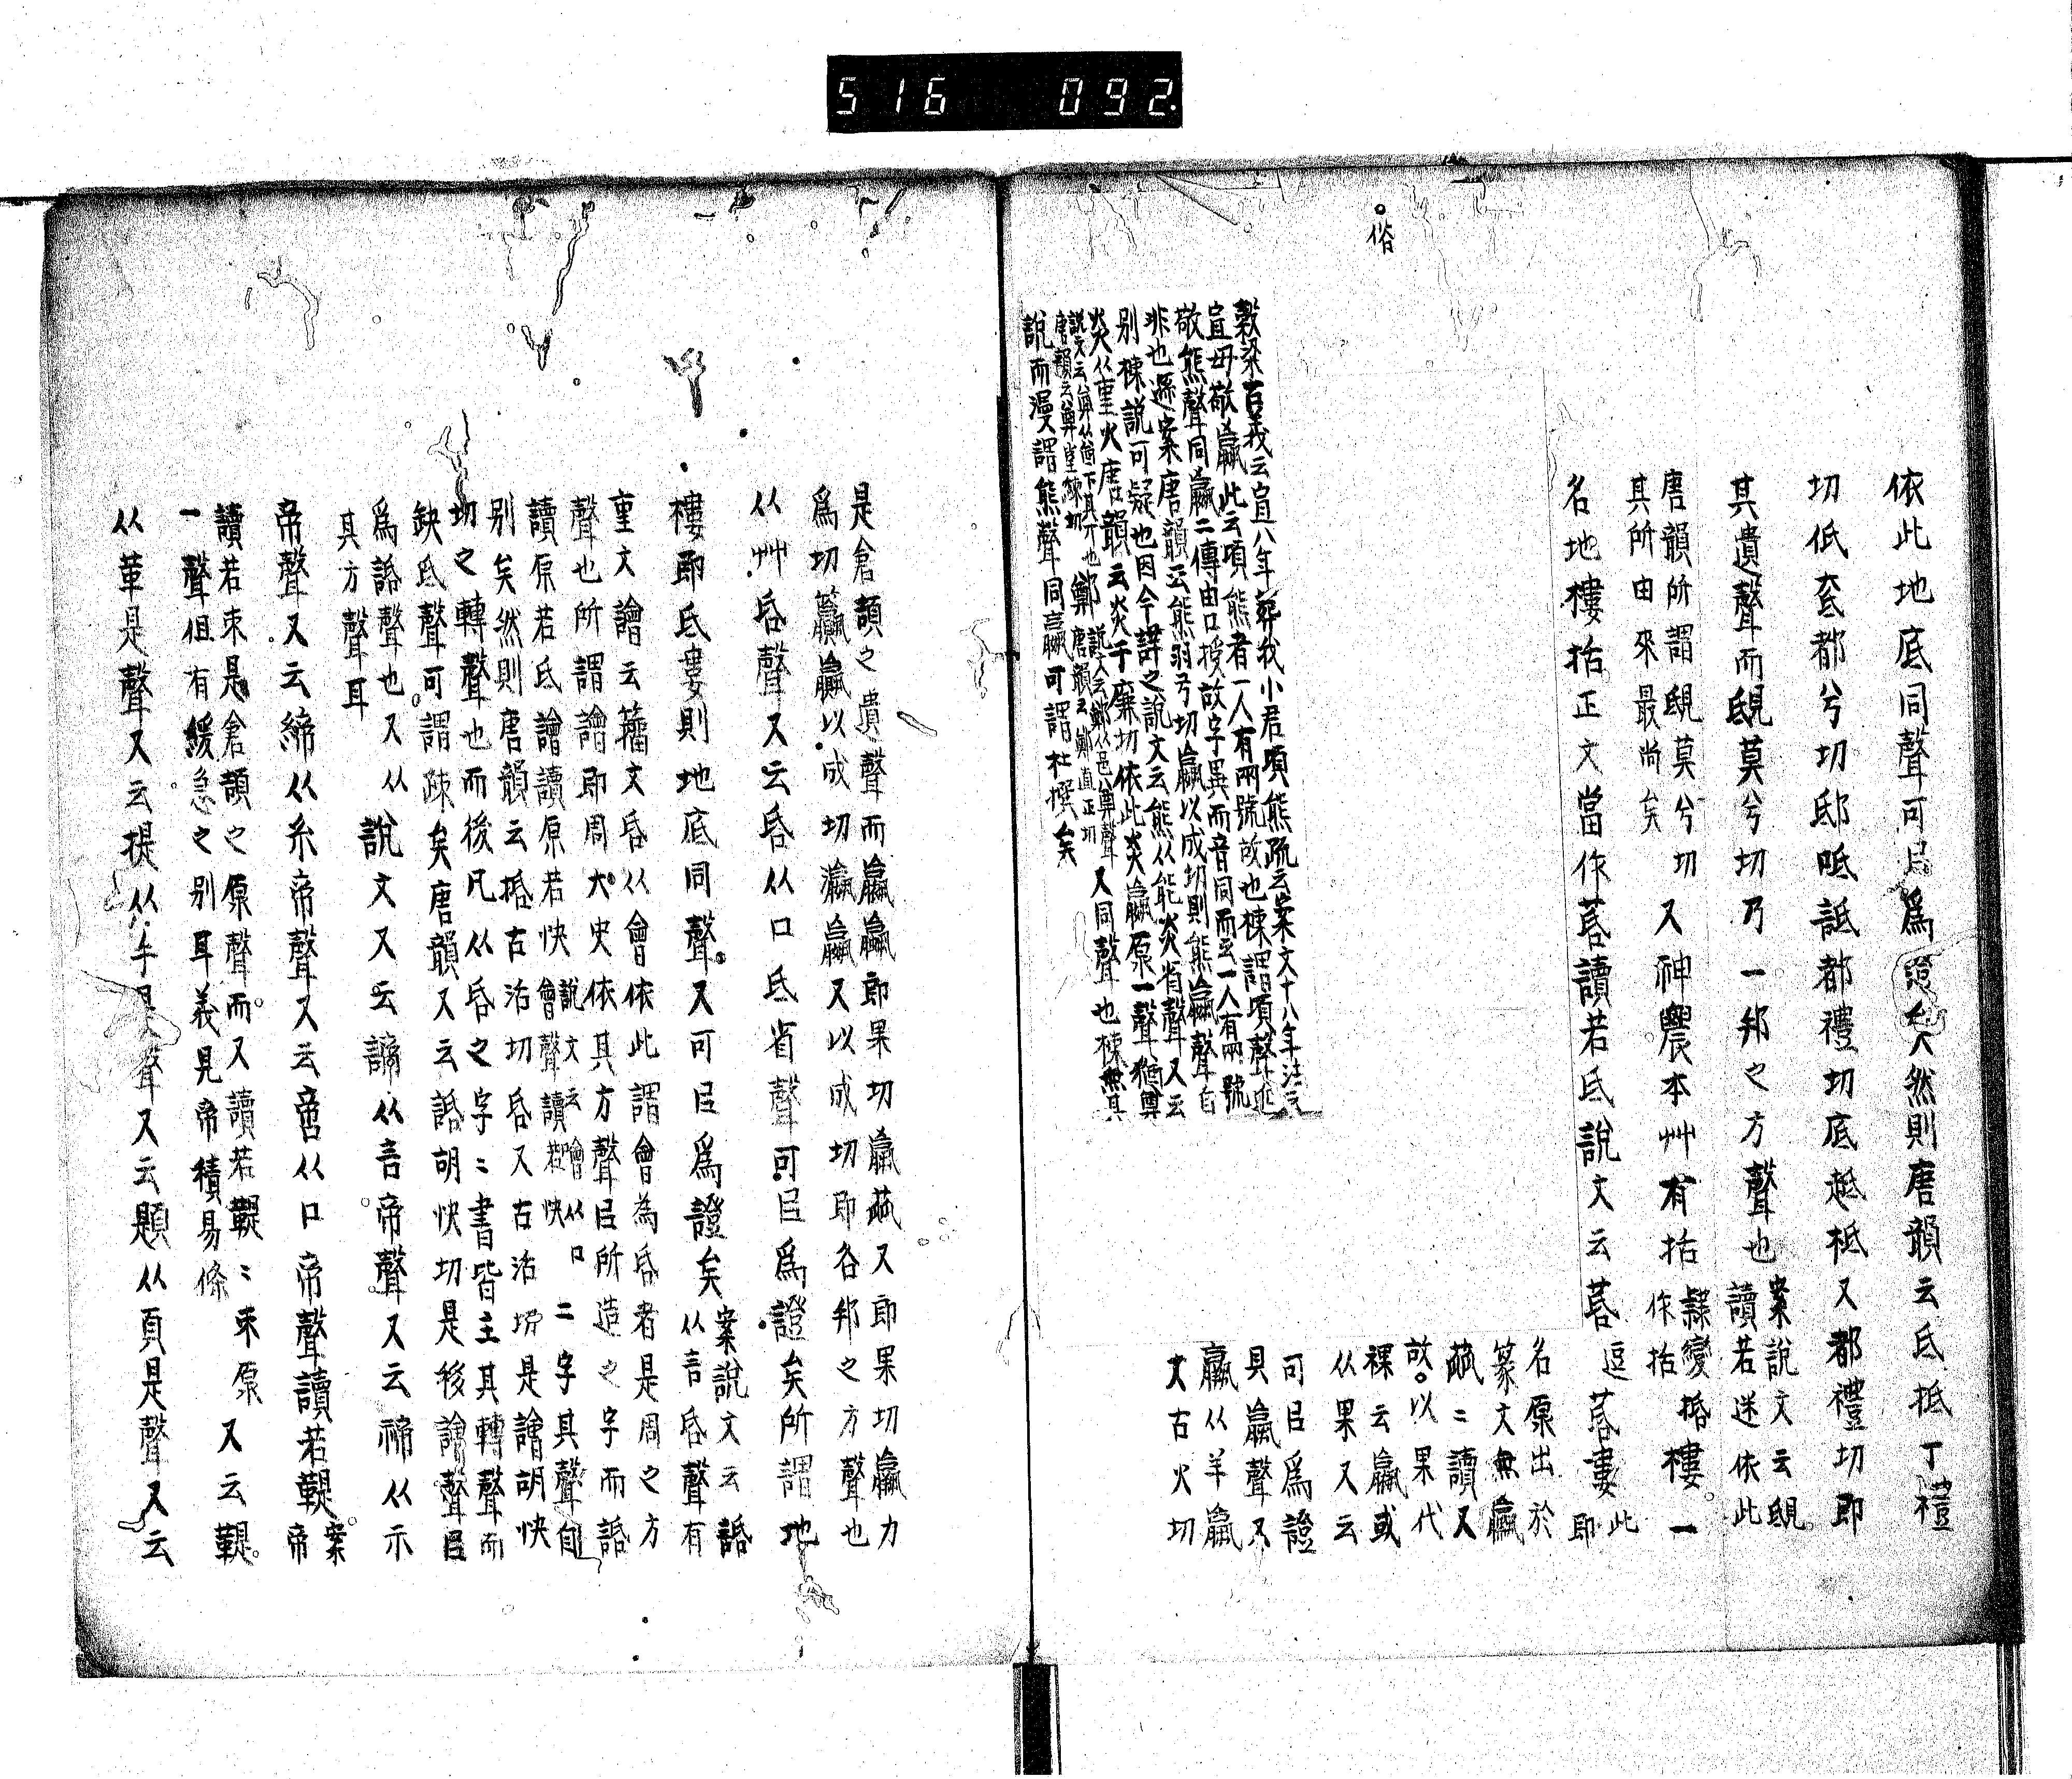 516 092
依此地底同聲可㠯爲證矣然則唐韻云氐抵丁禮
切低奃都兮切邸呧詆都禮切底趆柢又都禮切即
其遺聲而䚣莫兮切乃一邦之方聲也
案說文云䚣
讀若迷依此
唐韻所謂䚣莫兮切
其所由來最尚矣
又神農本艸有括
隸變
作括
㨒樓一
名地樓括正文當作䓇讀若氐說文云䓇
逗
䓇婁
此
即
俗
穀梁音義云宣八年葬我小君頃熊疏云案文十八年注云
宣母敬嬴此云頃熊者一人有兩號故也棟謂頃聲近
敬熊聲同嬴二傳由口授故字異而音同而云一人有兩號
非也遜案唐韻云熊羽弓切嬴以成切則熊嬴聲自
別棟說可疑也因今詳之說文云熊从能炎省聲又云
炎从重火唐韻云炎于廉切依此炎嬴原一聲猶奠
說文云奠从酋下其丌也
唐韻云奠堂練切
鄭
說文云鄭从邑奠聲
唐韻云鄭直正切
又同聲也棟無其
說而漫謂熊聲同嬴可謂杜撰矣
名原出於
篆文無蠃
蠃二讀又
故以果代
裸云蠃或
从果又云
可㠯爲證
貝蠃聲又
羸从羊蠃
文古火切
是倉頡之遺聲而蠃蠃即果切蠃蠃又郎果切羸力
爲切籯嬴以成切瀛嬴又以成切即各邦之方聲也
从艸㫟聲又云㫟从口氐省聲可㠯爲證矣所謂地
樓即氐婁則地底同聲又可㠯爲證矣
案說文云䛡
从言㫟聲有
重文譮云籒文㫟从會依此謂會為㫟者是周之方
聲也所謂譮即周大史依其方聲㠯所造之字而䛡
讀原若氐譮讀原若快
說文云噲从口
會聲讀若快
二字其聲自
別矣然則唐韻云㨒古活切㫟又古活切是譮胡快
切之轉聲也而後凡从㫟之字二書皆主其轉聲而
缺氐聲可謂疎矣唐韻又云䛡胡快切是移譮聲㠯
爲䛡聲也又从
其方聲耳
說文又云諦从言帝聲又云禘从示
帝聲又云締从糸帝聲又云啻从口帝聲讀若鞮
案
帝
讀若朿是倉頡之原聲而又讀若鞮二朿原
一聲但有緩急之別耳義見帝積易條
又云鞮
从革是聲又云提从手是聲又云題从頁是聲又云